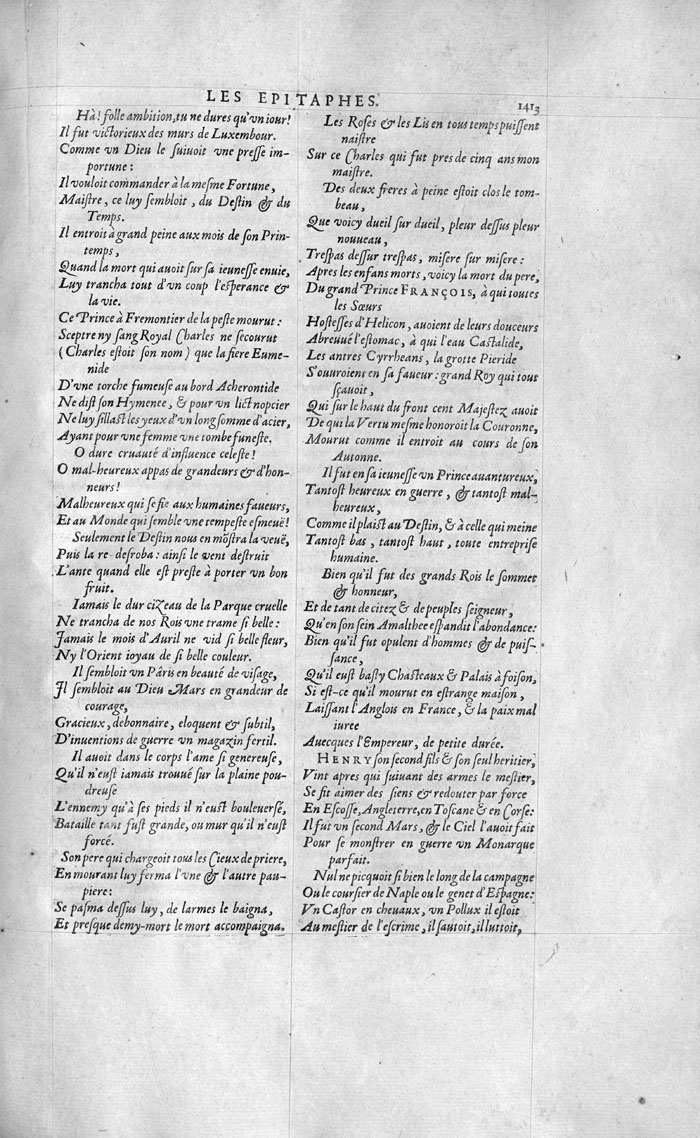 LES EPITAPHES.
1413
Hà! folle ambition, tu ne dures qu'vn iour!
Il fut victorieux des murs de Luxembour.
Comme vn Dieu le suiuoit vne presse im-
portune:
Il vouloit commander à la mesme Fortune,
Maistre, ce luy sembloit, du Destin & du
Temps.
Il entroit à grand peine aux mois de son Prin-
temps,
Quand la mort qui auoit sur sa ieunesse enuie,
Luy trancha tout d'vn coup l'esperance &
la vie.
Ce Prince à Fremontier de la peste mourut:
Sceptre ny sang Royal Charles ne secourut
(Charles estoit son nom) que la fiere Eume-
nide
D'vne torche fumeuse au bord Acherontide
Ne dist son Hymenee, & pour vn lict nopcier
Ne luy sillast les yeux d'vn long somme d'acier,
Ayant pour vne femme vne tombe funeste.
O dure cruauté d'influence celeste!
O mal-heureux appas de grandeurs & d'hon-
neurs!
Malheureux qui se fie aux humaines faueurs,
Et au Monde qui semble vne tempeste esmeuë!
Seulement le Destin nous en mõstra la veuë,
Puis la re-desroba: ainsi le vent destruit
L'ante quand elle est preste à porter vn bon
fruit.
Iamais le dur cizeau de la Parque cruelle
Ne trancha de nos Rois vne trame si belle:
Jamais le mois d'Auril ne vid si belle fleur,
Ny l'Orient ioyau de si belle couleur.
Il sembloit vn Pâris en beauté de visage,
Jl sembloit au Dieu Mars en grandeur de
courage,
Gracieux, debonnaire, eloquent & subtil,
D'inuentions de guerre vn magazin fertil.
Il auoit dans le corps l'ame si genereuse,
Qu'il n'eust iamais trouué sur la plaine pou-
dreuse
L'ennemy qu'à ses pieds il n'eust bouleuersé,
Bataille tant fust grande, ou mur qu'il n'eust
forcé.
Son pere qui chargeoit tous les Cieux de priere,
En mourant luy ferma l'vne & l'autre pau-
piere:
Se pasma dessus luy, de larmes le baigna,
Et presque demy-mort le mort accompaigna.
Les Roses & les Lis en tous temps puissent
naistre
Sur ce Charles qui fut pres de cinq ans mon
maistre.
Des deux freres à peine estoit clos le tom-
beau,
Que voicy dueil sur dueil, pleur dessus pleur
nouueau,
Trespas dessur trespas, misere sur misere:
Apres les enfans morts, voicy la mort du pere,
Du grand Prince FRANÇOIS, à qui toutes
les Sœurs
Hostesses d'Helicon, auoient de leurs douceurs
Abreuué l'estomac, à qui l'eau Castalide,
Les antres Cyrrheans, la grotte Pieride
S'ouuroient en sa faueur: grand Roy qui tout
sçauoit,
Qui sur le haut du front cent Majestez auoit
De qui la Vertu mesme honoroit la Couronne,
Mourut comme il entroit au cours de son
Autonne.
Il fut en sa ieunesse vn Prince auantureux,
Tantost heureux en guerre, & tantost mal-
heureux,
Comme il plaist au Destin, & à celle qui meine
Tantost bas, tantost haut, toute entreprise
humaine.
Bien qu'il fut des grands Rois le sommet
& honneur,
Et de tant de citez & de peuples seigneur,
Qu'en son sein Amalthee espandit l'abondance:
Bien qu'il fut opulent d'hommes & de puis-
sance,
Qu'il eust basty Chasteaux & Palais à foison,
Si est-ce qu'il mourut en estrange maison,
Laissant l'Anglois en France, & la paix mal
iuree
Auecques l'Empereur, de petite durée.
HENRY son second fils & son seul heritier,
Vint apres qui suiuant des armes le mestier,
Se fit aimer des siens & redouter par force
En Escosse, Angleterre, en Toscane & en Corse:
Il fut vn second Mars, & le Ciel l'auoit fait
Pour se monstrer en guerre vn Monarque
parfait.
Nul ne picquoit si bien le long de la campagne
Ou le coursier de Naple ou le genet d'Espagne:
Vn Castor en cheuaux, vn Pollux il estoit
Au mestier de l'escrime, il sautoit, il luttoit,